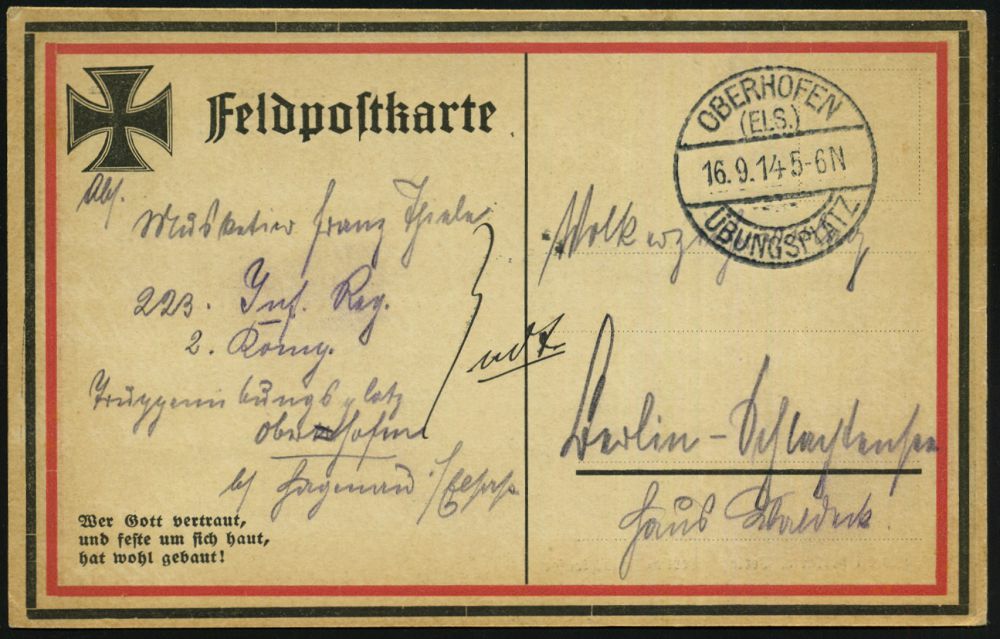 Feldpostkarte
Abs.
Musketier Franz Thiele
223. Inf. Reg.
2. Komp.
Truppenübungsplatz
Oberhofen
b/ Hagenau i/Elsass
Wer Gott vertraut,
und feste um sich haut,
hat wohl gebaut!
OBERHOFEN
(ELS.)
16.9.14 5-6N
ÜBUNGSPLATZ
Berlin - Schlachtensee
Haus Waldeck.